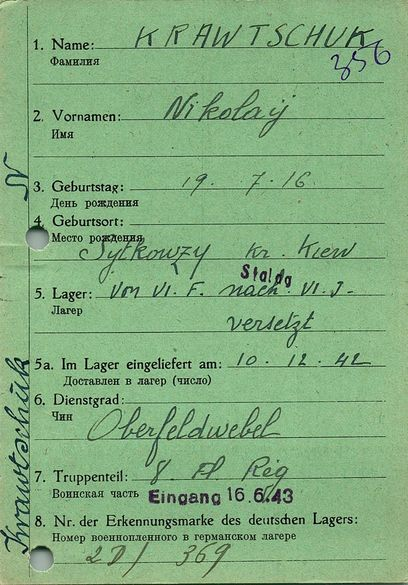 1. Name: KRAWTSCHUK
Фамилия
356
2. Vornamen: Nikolaÿ
Имя
3. Geburtstag: 19. 7. 16.
День рождения
4. Geburtsort:
Место рождения
Sytkowzy kr. Kiew
Stalag
5. Lager: von VI. F. nach VI. J.
Лагер
versetzt
5a. Im Lager eingeliefert am: 10. 12. 42
Доставлен в лагер (число)
6. Dienstgrad:
Чин
Oberfeldwebel
7. Truppenteil: 8. Fl. Reg
Воинская часть Eingang 16.6.43
8. Nr. der Erkennungsmarke des deutschen Lagers:
Номер военнопленного в германском лагере
2D/ 369
N
Krawtschuk